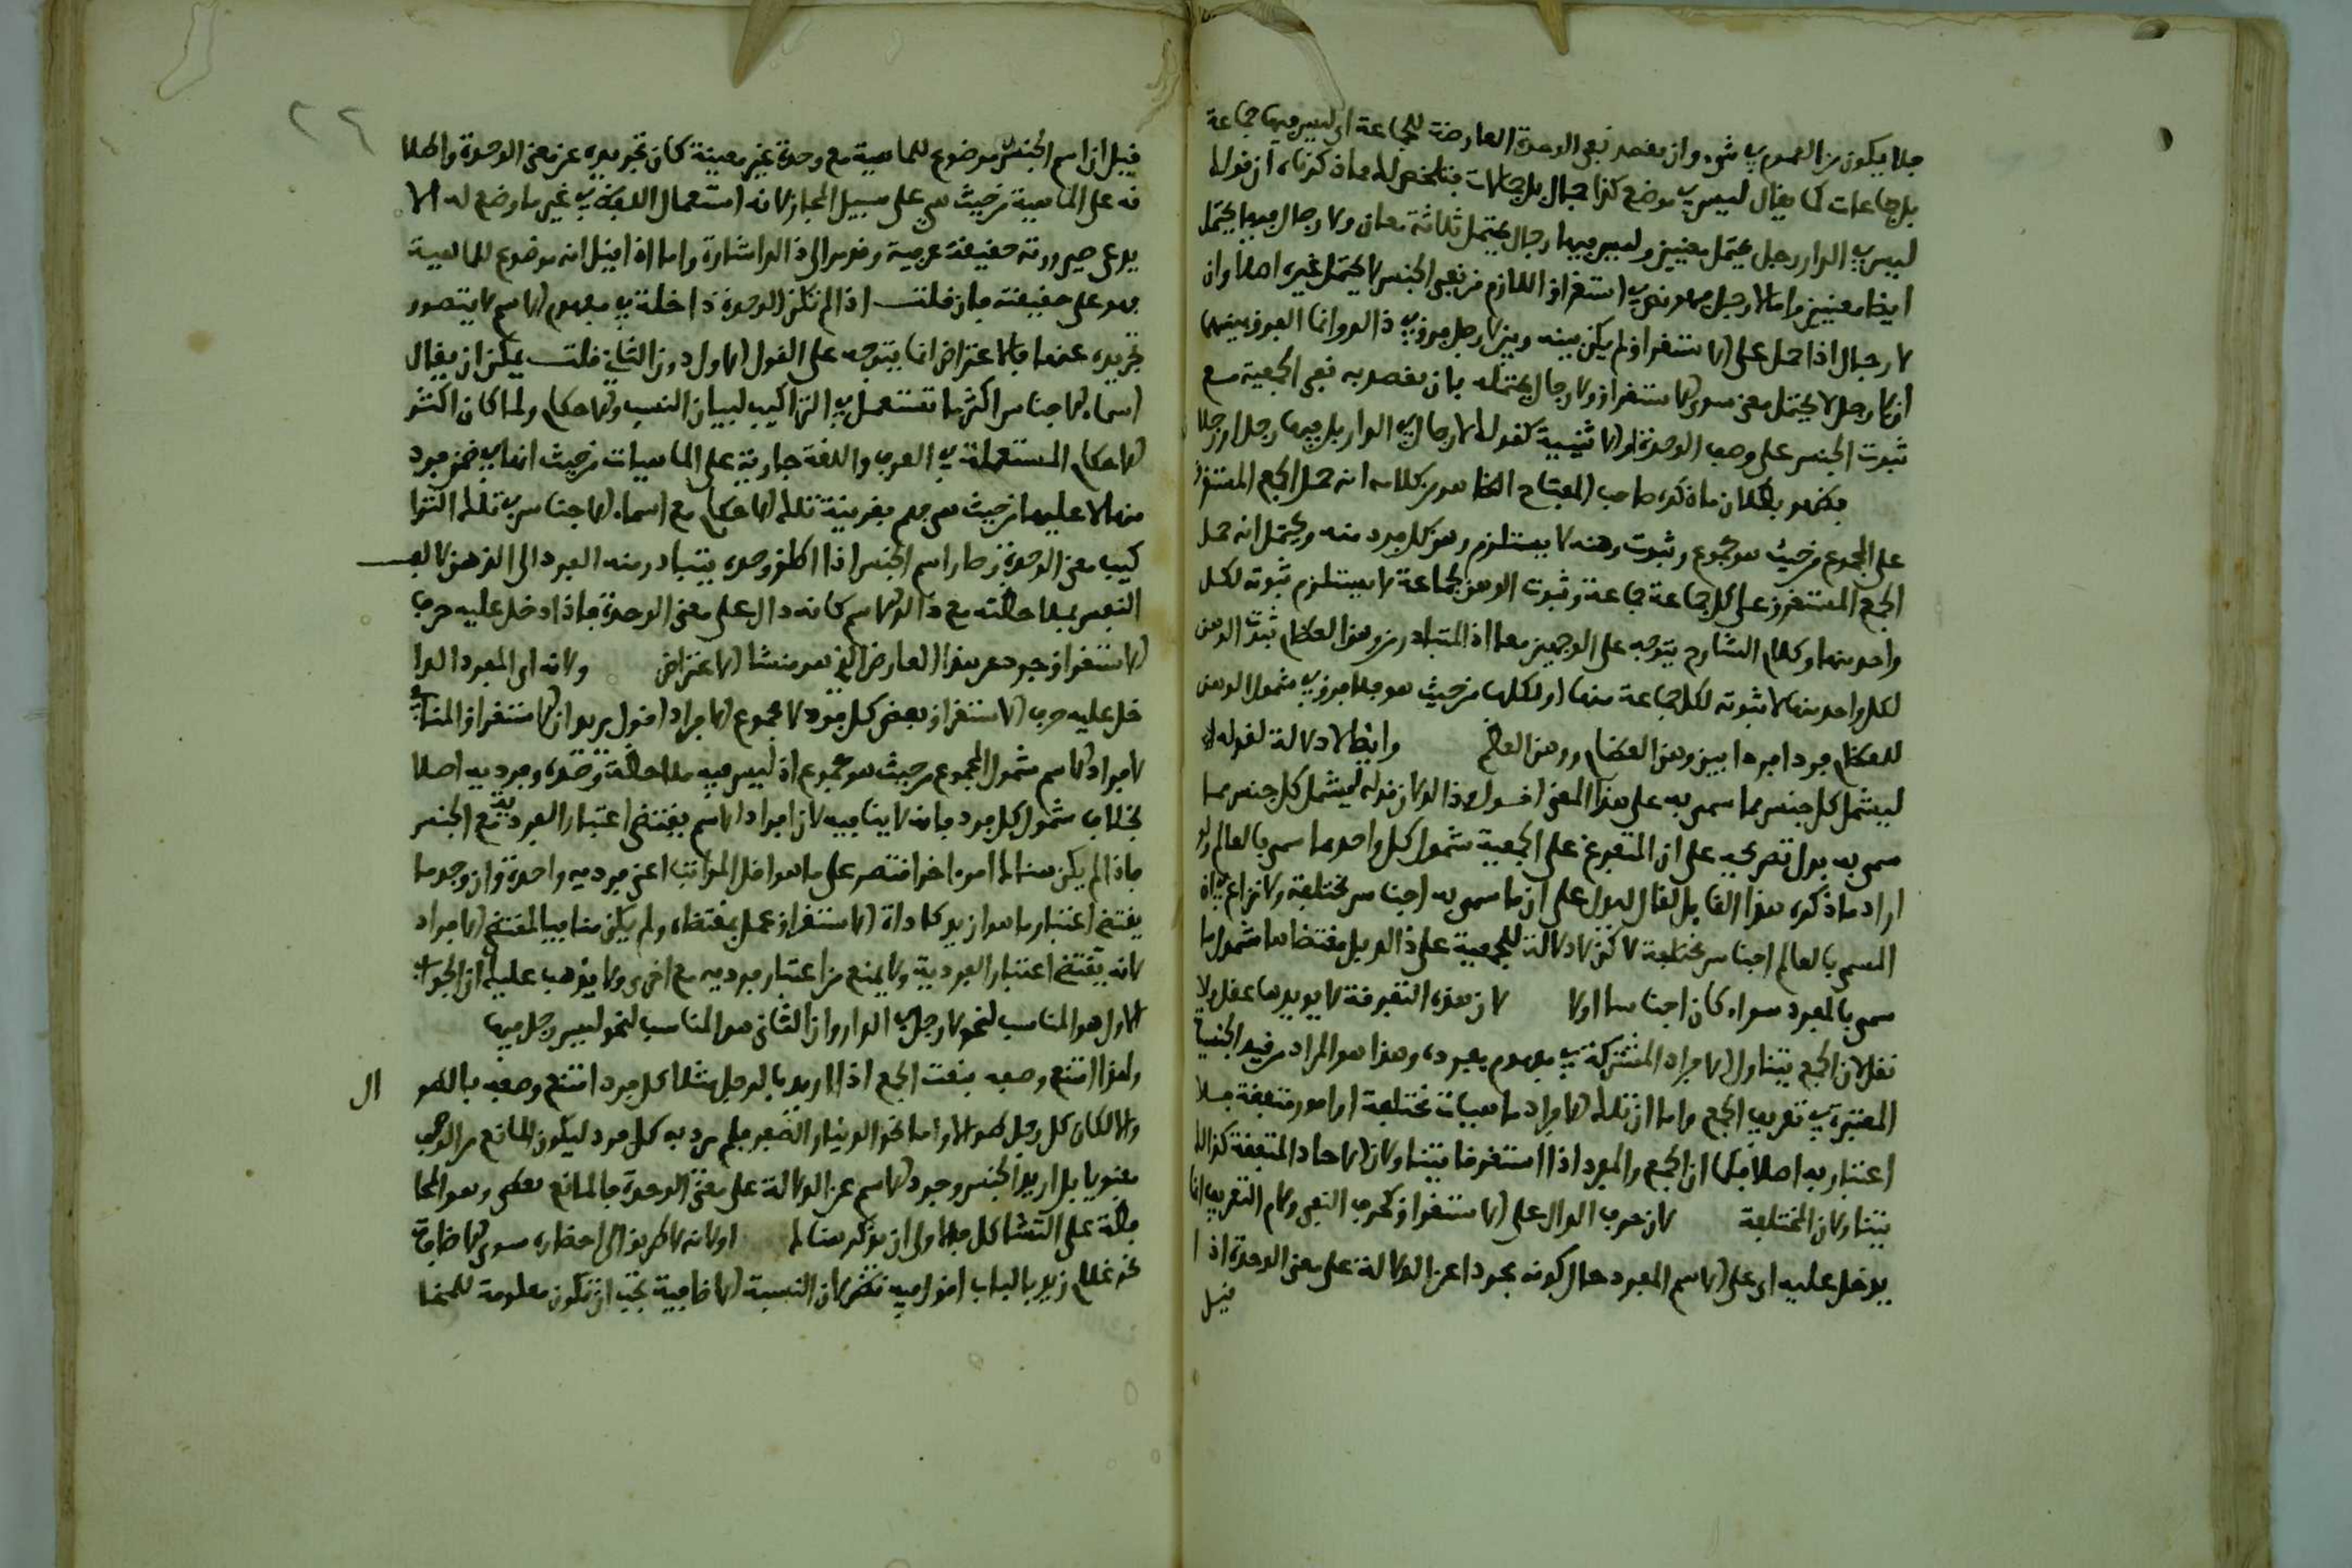 فلا يكون من العموم في شيء وان يقصد نفي الوحدة العارضة للجماعة اي ليس فيها جماعة
بل جماعات كما يقال ليس في موضع كذا جمال بل جمالات فتلخص لك مما ذكرناه ان قولك
ليس في الدار رجل يحتمل معنيين وليس فيها رجال يحتمل ثلاثة معان ولا رجال فيها يحتمل
ايضا معنيين واما لا رجل فهو نص في استغراق اللازم من نفي الجنس لا يحتمل غيره اصلا وان
لا رجال اذا حمل على الاستغراق لم يكن بينه وبين لا رجل فرق في ذلك وانما الفرق بينهما
ان لا رجل لا يحتمل معنى سوى الاستغراق ولا رجال يحتمله بان يقصد به نفي الجمعية مع
ثبوت الجنس على وصف الوحدة او الاثنينية كقولك لا رجال في الدار بل فيها رجل او رجلان
فظهر بطلان ما ذكره صاحب المفتاح الظاهر من كلامه انه حمل الجمع المستغرق
على المجموع من حيث هو مجموع وثبوت وهنه لا يستلزم وهن كل فرد منه ويحتمل انه حمل
الجمع المستغرق على كل جماعة جماعة وثبوت الوهن لجماعة لا يستلزم ثبوته لكل
واحد منها وكلام الشارح يتوجه على الوجهين معا اذ المتبادر من وهن العظام ثبوت الوهن
لكل واحد منها لا ثبوته لكل جماعة منها او لكلها من حيث هو فلا فرق في شمول الوهن
للعظام فردا فردا بين وهن العظام ووهن العظم وايضا لا دلالة لقوله
ليشمل كل جنس مما سمي به على هذا المعنى اقول ذلك لان قوله ليشمل كل جنس مما
سمي به يدل بصريحه على ان المتفرع على الجمعية شمول كل واحد مما سمي بالعالم ولو
اراد ما ذكره هذا القائل لقال ليدل على ان ما سمي به اجناس مختلفة ولا نزاع في ان
المسمى بالعالم اجناس مختلفة لكن لا دلالة للجمعية على ذلك بل مقتضاها شمول ما
سمي بالمفرد سواء كان اجناسا او لا لان هذه التفرقة لا يؤيدها عقل ولا
نقل لان الجمع يتناول الافراد المشتركة في مفهوم مفرده وهذا هو المراد من قيد الجنسية
المعتبرة في تعريف الجمع واما ان تلك الافراد ماهيات مختلفة او امور متفقة فلا
اعتبار به اصلا فكما ان الجمع والمفرد اذا استغرقا يتناولان الاحاد المتفقة كذلك
يتناولان المختلفة لان حرف الدال على الاستغراق كحرف النفي ولام التعريف انما
يدخل عليه اي على الاسم المفرد حال كونه مجردا عن الدلالة على معنى الوحدة اذا
قيل
٢٦
قيل ان اسم الجنس موضوع للماهية مع وحدة غير معينة كان تجريده عن معنى الوحدة واطلا
قه على الماهية من حيث هي على سبيل المجاز لانه استعمال اللفظ في غير ما وضع له الا ان
يدعى صيرورته حقيقة عرفية وقد مر الى ذلك اشارة واما اذا قيل انه موضوع للماهية
فهو على حقيقته فان قلت اذا لم تكن الوحدة داخلة في مفهوم الاسم لا يتصور
تجريده عنها فالاعتراض انما يتوجه على القول الاول دون الثاني قلت يمكن ان يقال
اسماء الاجناس اكثر ما تستعمل في التراكيب لبيان النسب والاحكام ولما كان اكثر
الاحكام المستعملة في العرف واللغة جارية على الماهيات من حيث انها في ضمن فرد
منها لا عليها من حيث هي فهم بقرينة تلك الاحكام مع اسماء الاجناس في تلك الترا
كيب معنى الوحدة وصار اسم الجنس اذا اطلق وحده يتبادر منه الفرد الى الذهن لالف
النفس بملاحظته مع ذلك الاسم كانه دال على معنى الوحدة فاذا دخل عليه حرف
الاستغراق جرد عن هذا العارض الذي هو منشا الاعتراض ولانه اي المفرد الدا
خل عليه حرف الاستغراق بمعنى كل فرد لا مجموع الافراد اقول يريد ان الاستغراق المنافي
لافراد الاسم شمول المجموع من حيث هو مجموع اذ ليس فيه ملاحظة وحدة وفردية اصلا
بخلاف شمول كل فرد فانه لا ينافيه لان افراد الاسم يقتضي اعتبار الفردية مع الجنس
فاذا لم يكن هناك امر اخر اقتصر على ما هو اقل المراتب اعني فردية واحدة وان وجد ما
يقتضي اعتبار ما هو ازيد كاداة الاستغراق عمل بمقتضاه ولم يكن منافيا لمقتضى الافراد
لانه يقتضي اعتبار الفردية ولا يمنع من اعتبار فردية مع اخرى ولا يذهب عليك ان الجواب
الاول هو المناسب لنحو لا رجل في الدار وان الثاني هو المناسب لنحو ليس رجل فيها
ولهذا امتنع وصفه بنعت الجمع اذا اريد بالرجل مثلا كل فرد امتنع وصفه بالطو ال
والا لكان كل رجل طوالا واما نحو الدينار الصفر فلم يرد به كل فرد ليكون المانع من الوصف
معنويا بل اريد الجنس وجرد الاسم عن الدلالة على معنى الوحدة فالمانع لفظي وهو المحا
فظة على التشاكل فالاولى ان يذكر هناك اولانه لا طريق الى احضاره سوى الاضافة
نحو غلام زيد بالباب اقول فيه نظر لان النسبة الاضافية يجب ان تكون معلومة للمخا